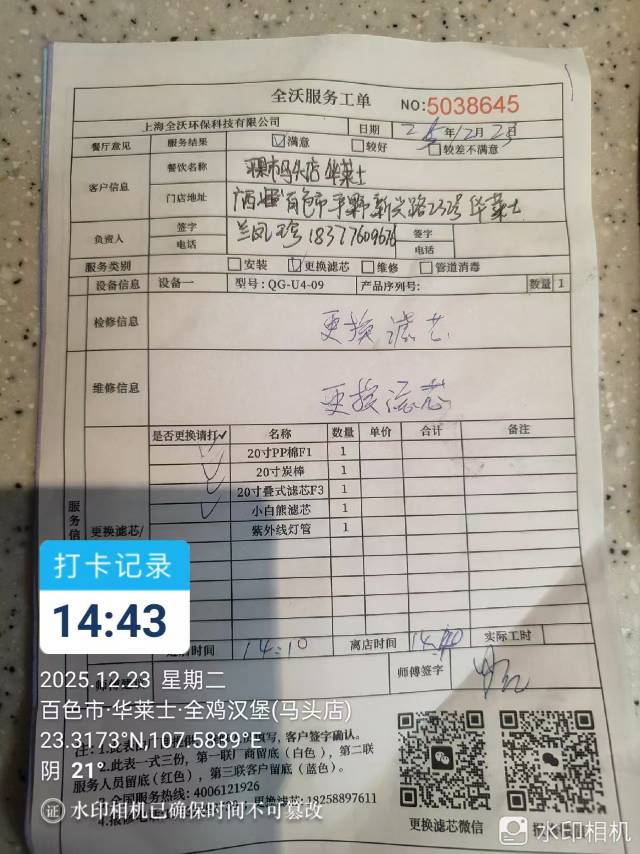 全沃服务工单 NO:5038645
上海全沃环保科技有限公司 日期 25年12月23
餐厅意见 服务结果 ☑满意 ☐较好 ☐较差不满意
客户信息 餐饮名称 马头店 华莱士
门店地址 广西 百色市平 新兴路232号 华莱士
负责人 签字 兰凤 签字
电话 18377609676 电话
服务类别 ☐安装 ☑更换滤芯 ☐维修 ☐管道消毒
设备信息 设备一 型号:QG-U4-09 产品序列号: 数量 1
检修信息 更换滤芯
维修信息 更换滤芯
是否更换请打✓ 名称 数量 单价 合计 备注
✓ 20寸PP棉F1 1
✓ 20寸炭棒 1
✓ 20寸叠式滤芯F3 1
✓ 小白熊滤芯 1
紫外线灯管 1
服务信
更换滤芯/
打卡记录
14:43
店时间 14:10 离店时间 实际工时
师傅签字
2025.12.23 星期二
百色市·华莱士·全鸡汉堡(马头店)
23.3173°N,107.5839°E
阴 21°
注:1.此表 填写,客户签字确认。
2.此表一式三份,第一联厂商留底(白色),第二联
服务人员留底(红色),第三联客户留底(蓝色)。
3.全国服务热线:4006121926
更换滤芯:18258897611
水印相机已确保时间不可篡改
更换滤芯微信
水印相机